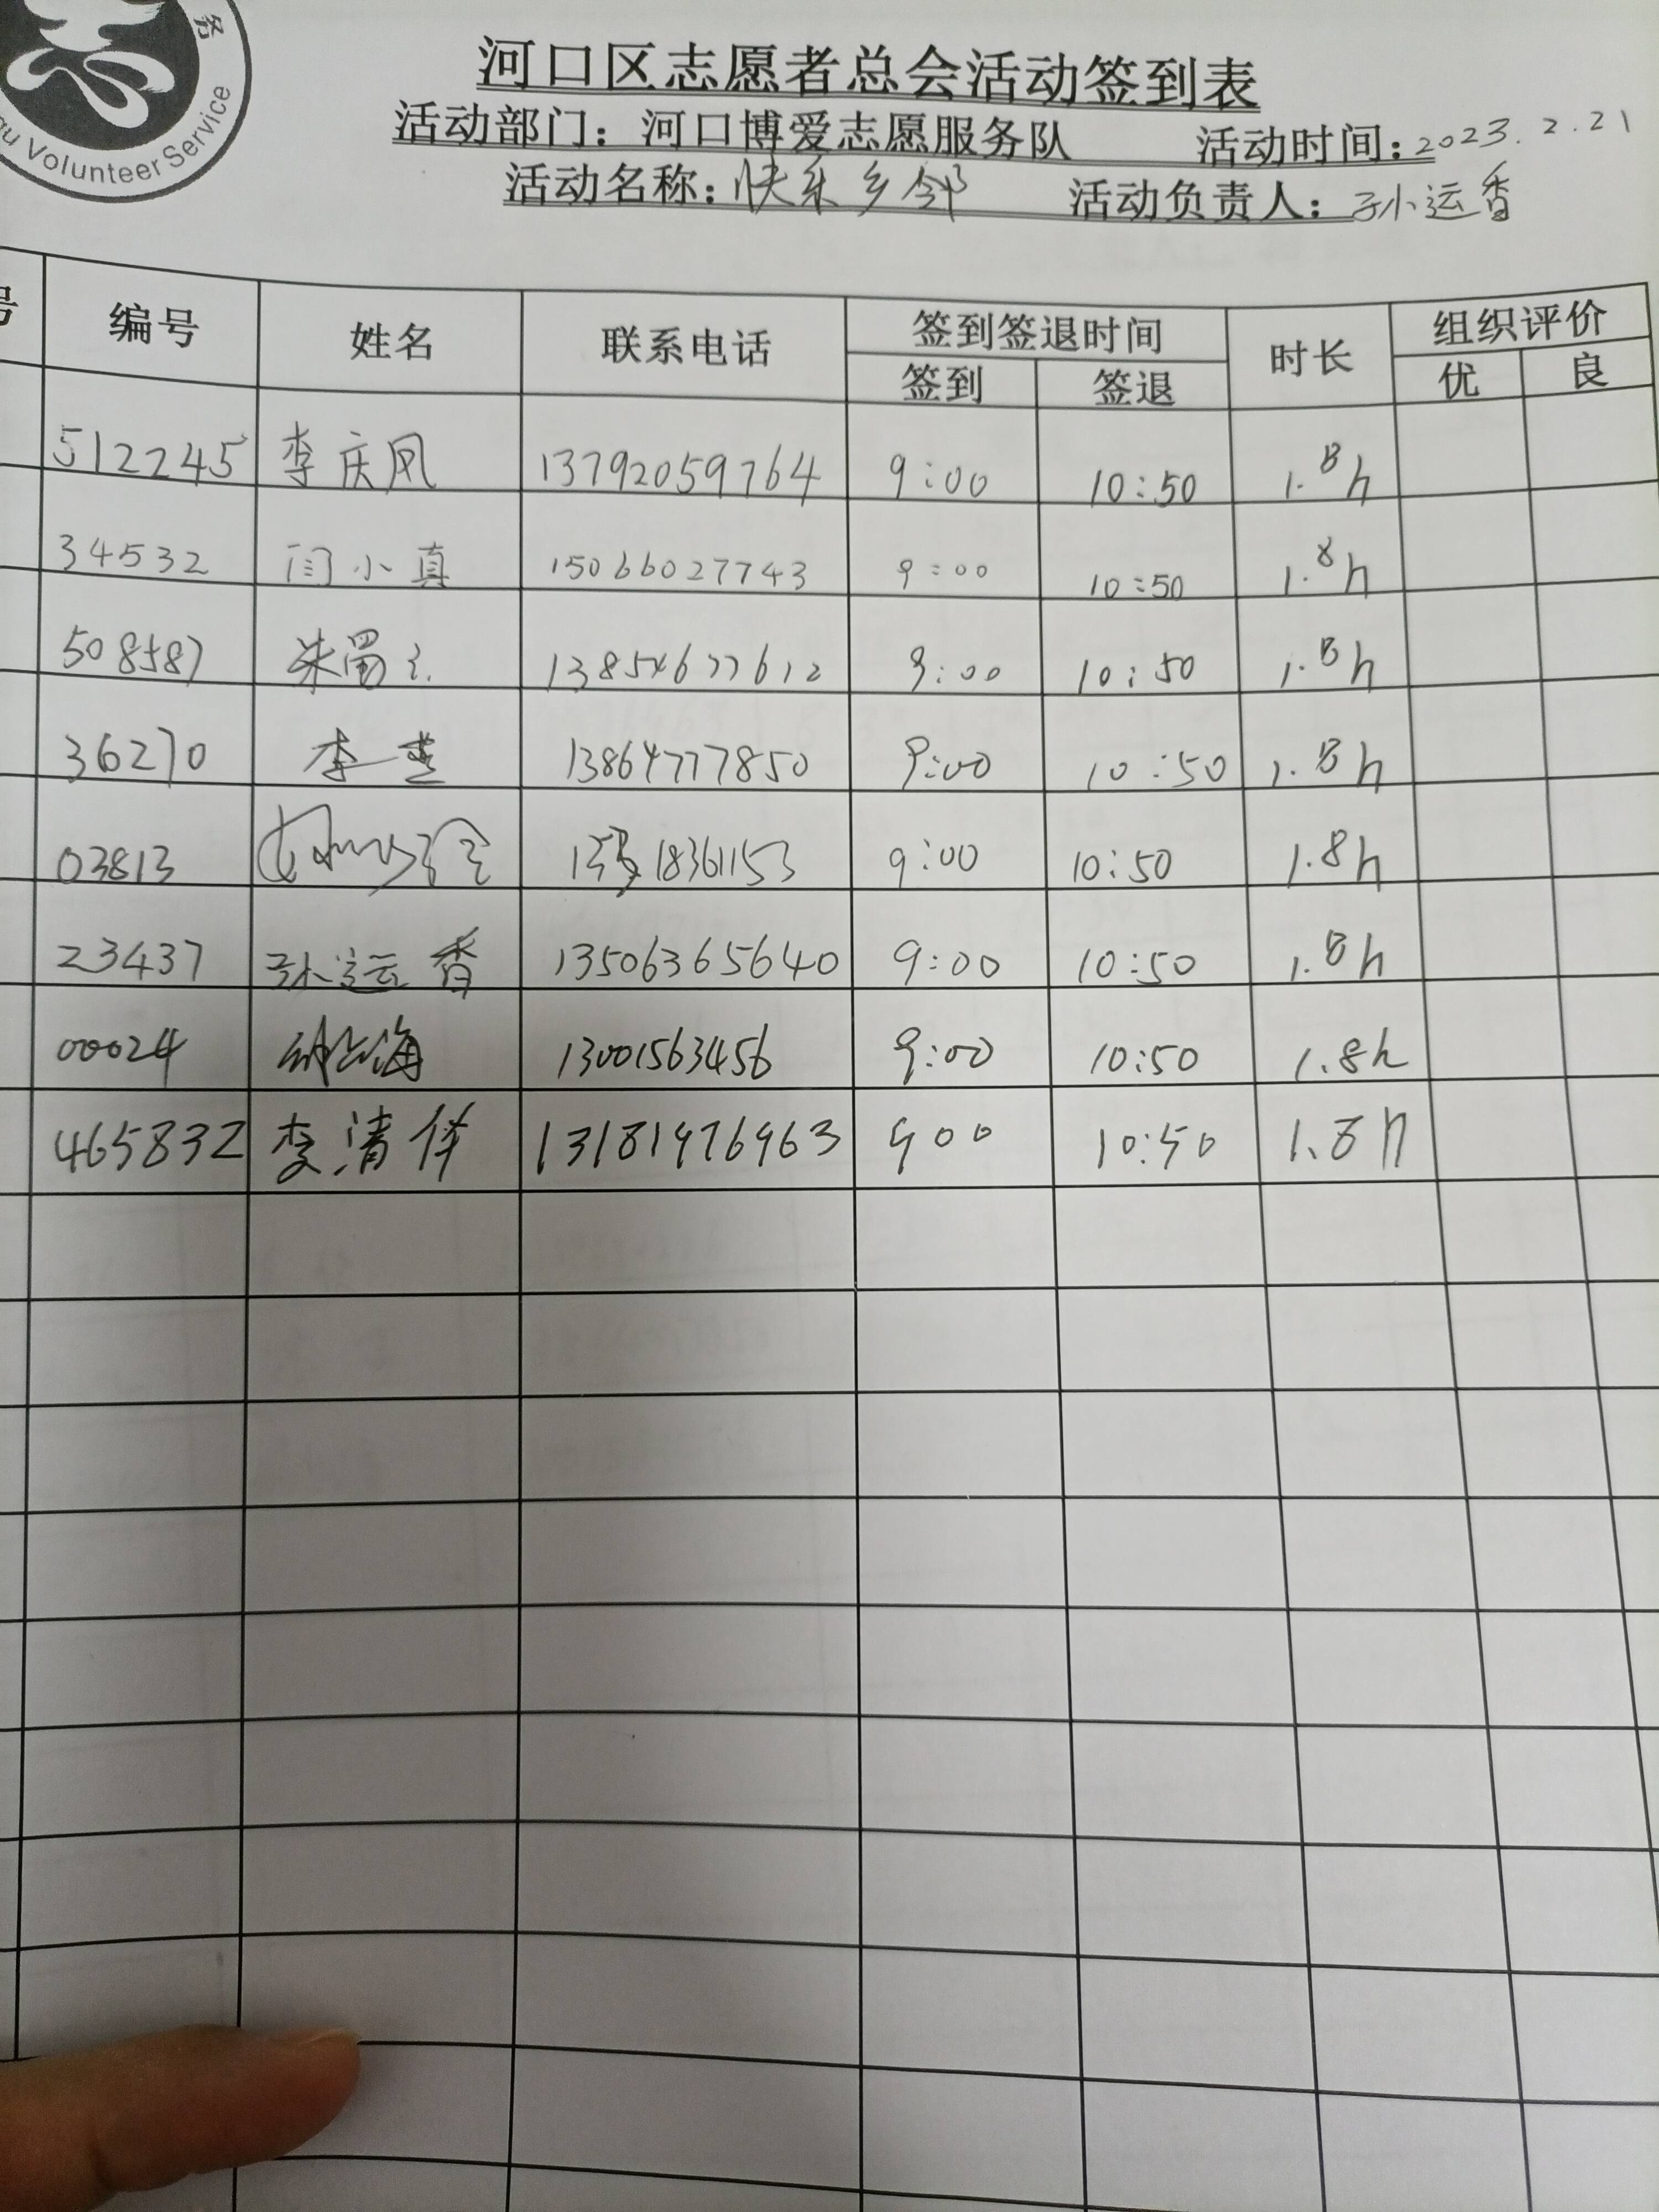 务
u Volunteer Service
河口区志愿者总会活动签到表
活动部门：河口博爱志愿服务队 活动时间：2023.2.21
活动名称：快乐乡邻 活动负责人：孙运香
号 编号 姓名 联系电话 签到签退时间 时长 组织评价
签到 签退 优 良
512245 李庆凤 13792059764 9:00 10:50 1.8h
34532 闫小真 15066027743 9:00 10:50 1.8h
508587 13854677612 9:00 10:50 1.8h
36270 李 13864777850 9:00 10:50 1.8h
03813 18361153 9:00 10:50 1.8h
23437 孙运香 13506365640 9:00 10:50 1.8h
00024 海 13001563456 9:00 10:50 1.8h
465832 李清 13181976963 900 10:50 1.8h